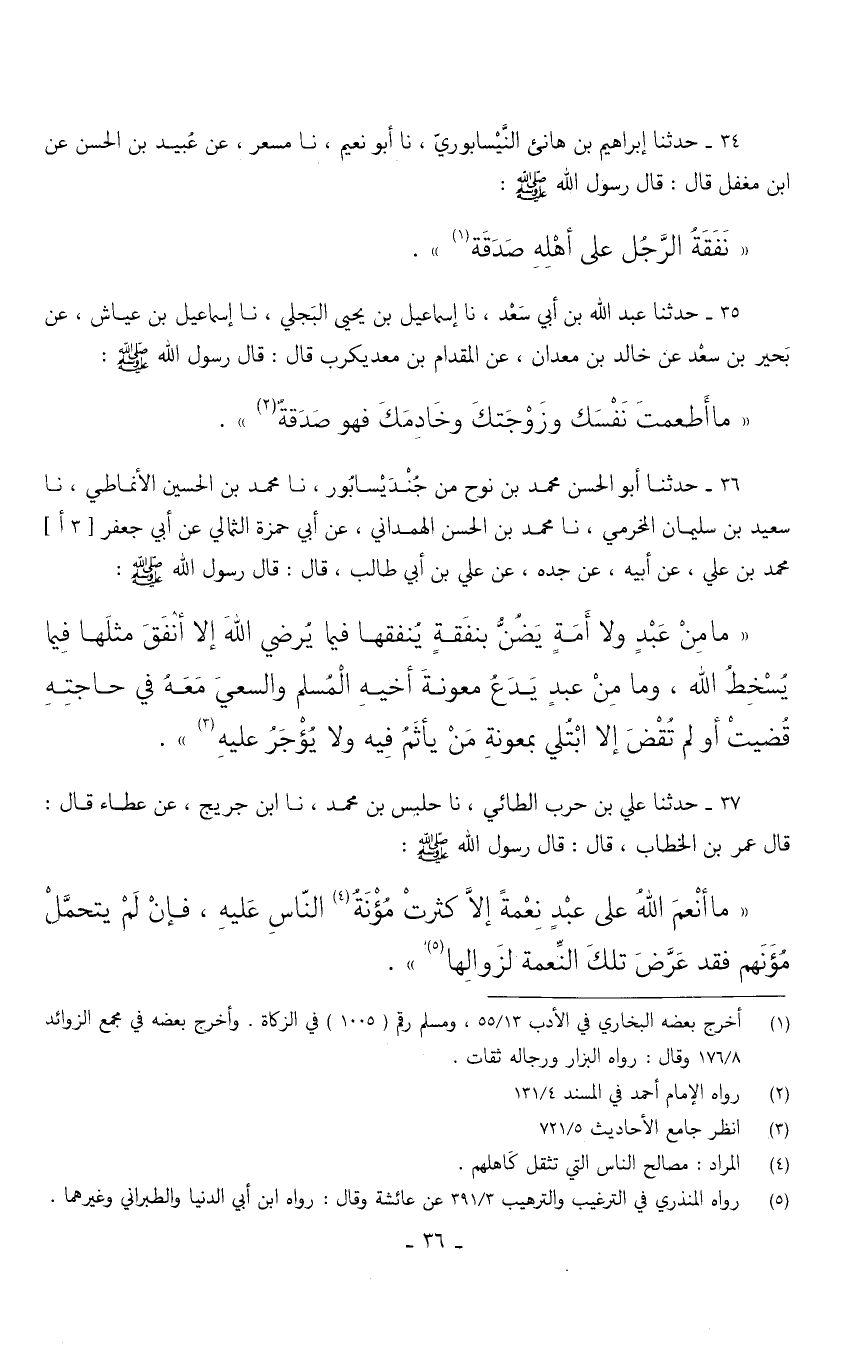 ٣٤ ـ حدثنا إبراهيم بن هانئ النَّيْسابوريّ ، نا أبو نعيم ، نـا مسعر ، عن عُبيـد بن الحسن عن
ابن مغفل قال : قال رسول الله ﷺ :
« نَفَقَةُ الرَّجُل على أهْلِهِ صَدَقَة(١) » .
٣٥ ـ حدثنا عبد الله بن أبي سَعْد ، نا إسماعيل بن يحيى البَجلي ، نـا إسماعيل بن عيـاش ، عن
بَحير بن سعْد عن خالد بن معدان ، عن المقدام بن معديكرب قال : قال رسول الله ﷺ :
« ماأَطعمتَ نَفْسَك وزَوْجَتكَ وخَادِمَكَ فهو صَدَقةٌ(٢) » .
٣٦ ـ حدثنـا أبو الحسن محمـد بن نوح من جُنْـدَيْسـابُور ، نـا محمـد بن الحسين الأنمـاطي ، نـا
سعيد بن سليمان المخرمي ، نـا محمـد بن الحسن الهمـداني ، عن أبي حمزة الثمالي عن أبي جعفر [ ٣ أ ]
محمد بن علي ، عن أبيه ، عن جده ، عن علي بن أبي طالب ، قال : قال رسول الله ﷺ :
« مامِنْ عَبْدٍ ولا أَمَـةٍ يَضُنُّ بنفَقـةٍ يُنفقهـا فيما يُرضي اللهَ إلا أنْفَقَ مثلَهـا فِيما
يُسْخِطُ الله ، وما مِنْ عبدٍ يَـدَعُ معونـةَ أخيـهِ الْمُسلم والسعيَ مَعَـهُ في حـاجتِـهِ
قُضيتْ أو لم تُقْضَ إلا ابْتُلي بمعونةِ مَنْ يأثَمُ فِيه ولا يُؤْجَرُ عليهِ(٣) » .
٣٧ ـ حدثنا علي بن حرب الطائي ، نا حلبس بن محمـد ، نـا ابن جريج ، عن عطـاء قـال :
قال عمر بن الخطاب ، قال : قال رسول الله ﷺ :
« ماأنْعمَ اللهُ على عبْدٍ نِعْمةً إلاَّ كثرتْ مُؤْنَةُ(٤) النّاسِ عَليهِ ، فـإنْ لَمْ يتحمَّلْ
مُؤَنَهم فقد عَرَّضَ تلكَ النِّعمة لزَوالِها(٥) » .
(١) أخرج بعضه البخاري في الأدب ٥٥/١٣ ، ومسلم رقم ( ١٠٠٥ ) في الزكاة . وأخرج بعضه في مجمع الزوائد
١٧٦/٨ وقال : رواه البزار ورجاله ثقات .
(٢) رواه الإمام أحمد في المسند ١٣١/٤
(٣) انظر جامع الأحاديث ٧٢١/٥
(٤) المراد : مصالح الناس التي تثقل كَاهلهم .
(٥) رواه المنذري في الترغيب والترهيب ٣٩١/٣ عن عائشة وقال : رواه ابن أبي الدنيا والطبراني وغيرهما .
ـ ٣٦ ـ